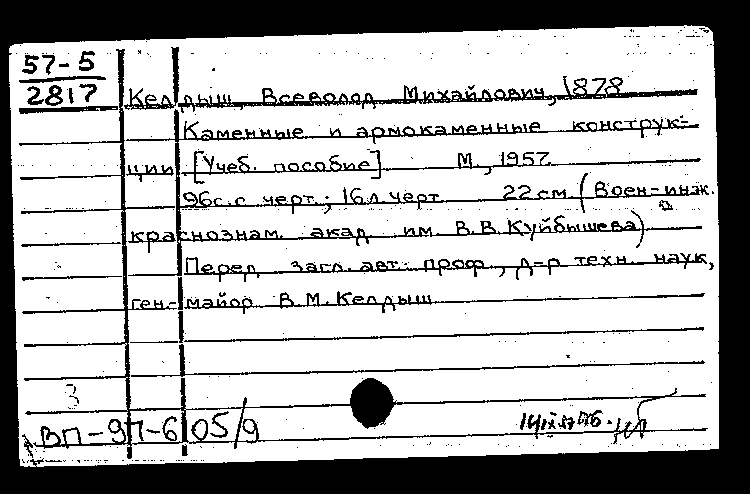 57-5
2817
Келдыш, Всеволод Михайлович, 1878
Каменные и армокаменные конструк=
ции. [Учеб. пособие] М., 1957.
96с. с черт.; 16л. черт. 22 см. (Воен=инж.
краснознам. акад. им. В.В. Куйбышева)
Перед загл. авт.: проф., д=р техн. наук,
ген=майор В.М. Келдыш
3
ВП-9П-6 05/9